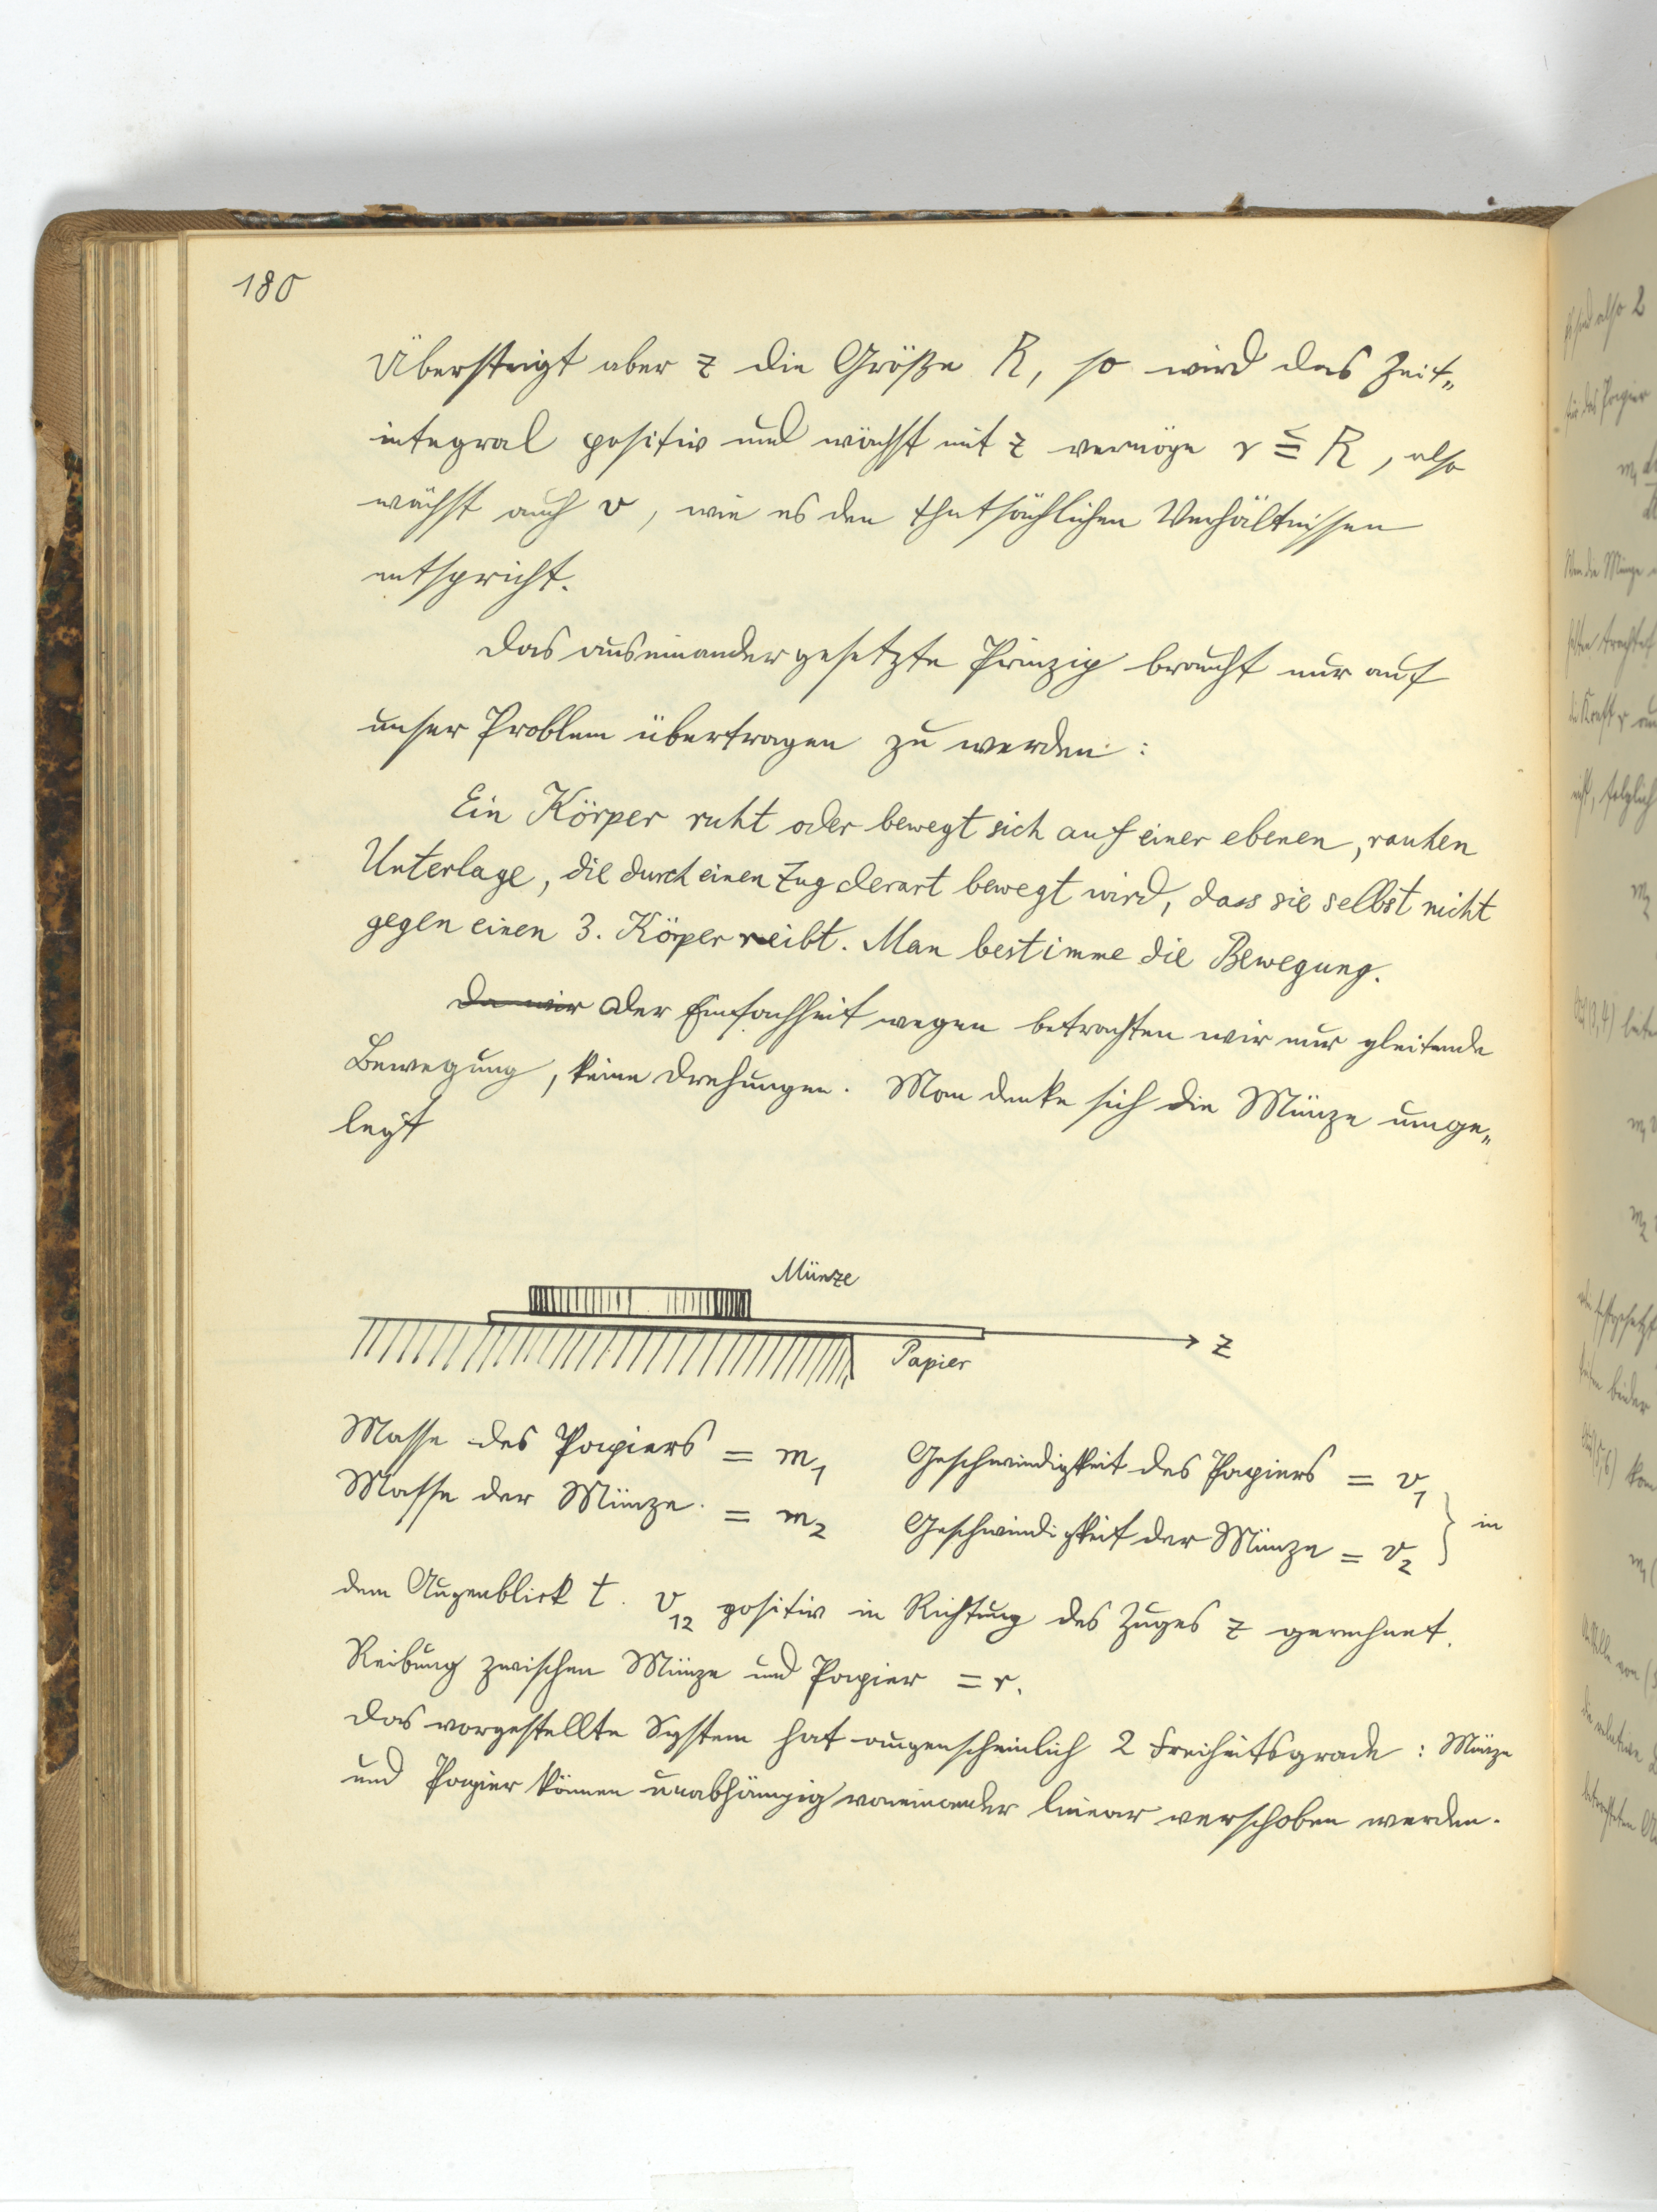 180
Übersteigt aber z die Größe R, so wird das Zeit„
integral positiv und wächst mit z vermöge r ≦ R, also
wächst auch v, wie es den thatsächlichen Verhältnissen
entspricht.
Das auseinandergesetzte Prinzip braucht nur auf
unser Problem übertragen zu werden:
Ein Körper ruht oder bewegt sich auf einer ebenen, rauhen
Unterlage, die durch einen Zug derart bewegt wird, dass sie selbst nicht
gegen einen 3. Körper reibt. Man bestimme die Bewegung.
Da wir Der Einfachheit wegen betrachten wir nur gleitende
Bewegung, keine Drehungen. Man denke sich die Münze umge„
legt
Münze
Papier
z
Masse des Papiers = m₁ Geschwindigkeit des Papiers = v₁
Masse der Münze = m₂ Geschwindigkeit der Münze = v₂ } in
dem Augenblick t. v₁₂ positiv in Richtung des Zuges z gerechnet.
Reibung zwischen Münze und Papier = r.
Das vorgestellte System hat augenscheinlich 2 Freiheitsgrade: Münze
und Papier können unabhängig voneinander linear verschoben werden.